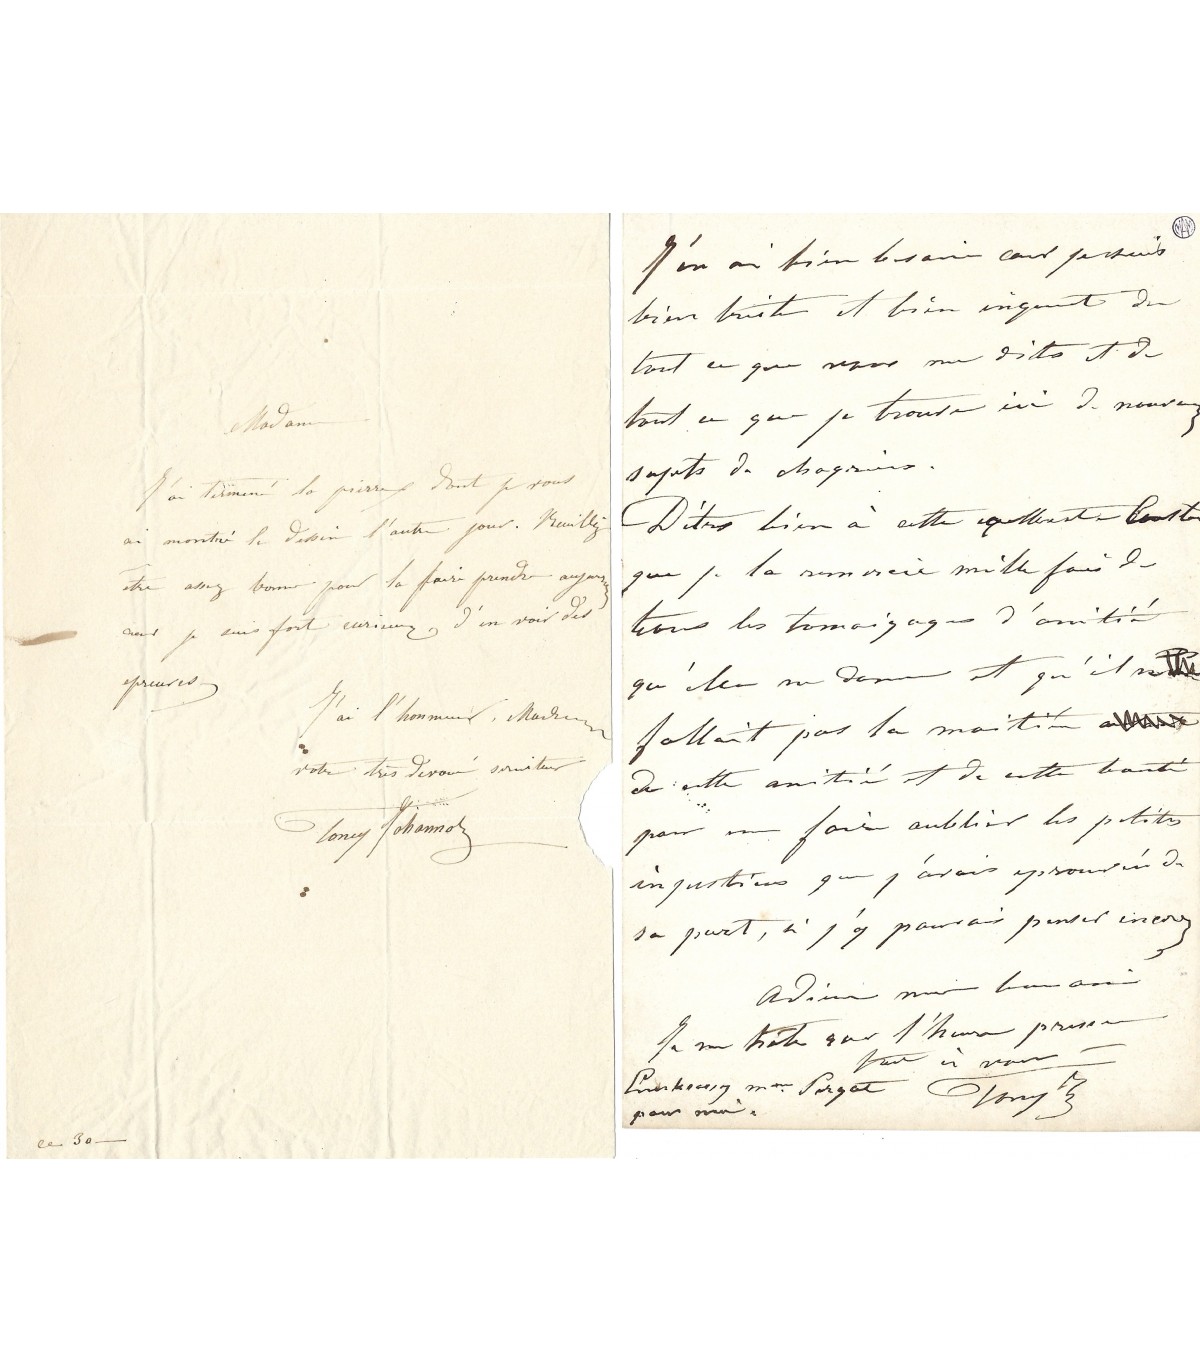 Madame
J'ai terminé la pierre dont je vous
ai montré le dessin l'autre jour. Veuillez
être assez bonne pour la faire prendre
car je suis fort curieux d'en voir des
epreuves
J'ai l'honneur, Madame
votre très dévoué serviteur
Tony Johannot
30
J'en ai bien besoin car je suis
bien triste et bien inquiet de
tout ce que vous me dites et de
tout ce que je trouve ici de nouveaux
sujets de chagrins.
Dites bien à cette excellente
que je la remercie mille fois de
tous les temoigages d'amitié
qu'elle me donne et qu'il ne
fallait pas la moitié
de cette amitié et de cette bonté
pour me faire oublier les petites
injustices que j'avais eprouvée de
sa part, si j'y pouvais penser encore
Adieu mon bon ami
Je me hâte car l'heure presse
tout à vous
Embrassez mme Pergot Tony
pour moi.